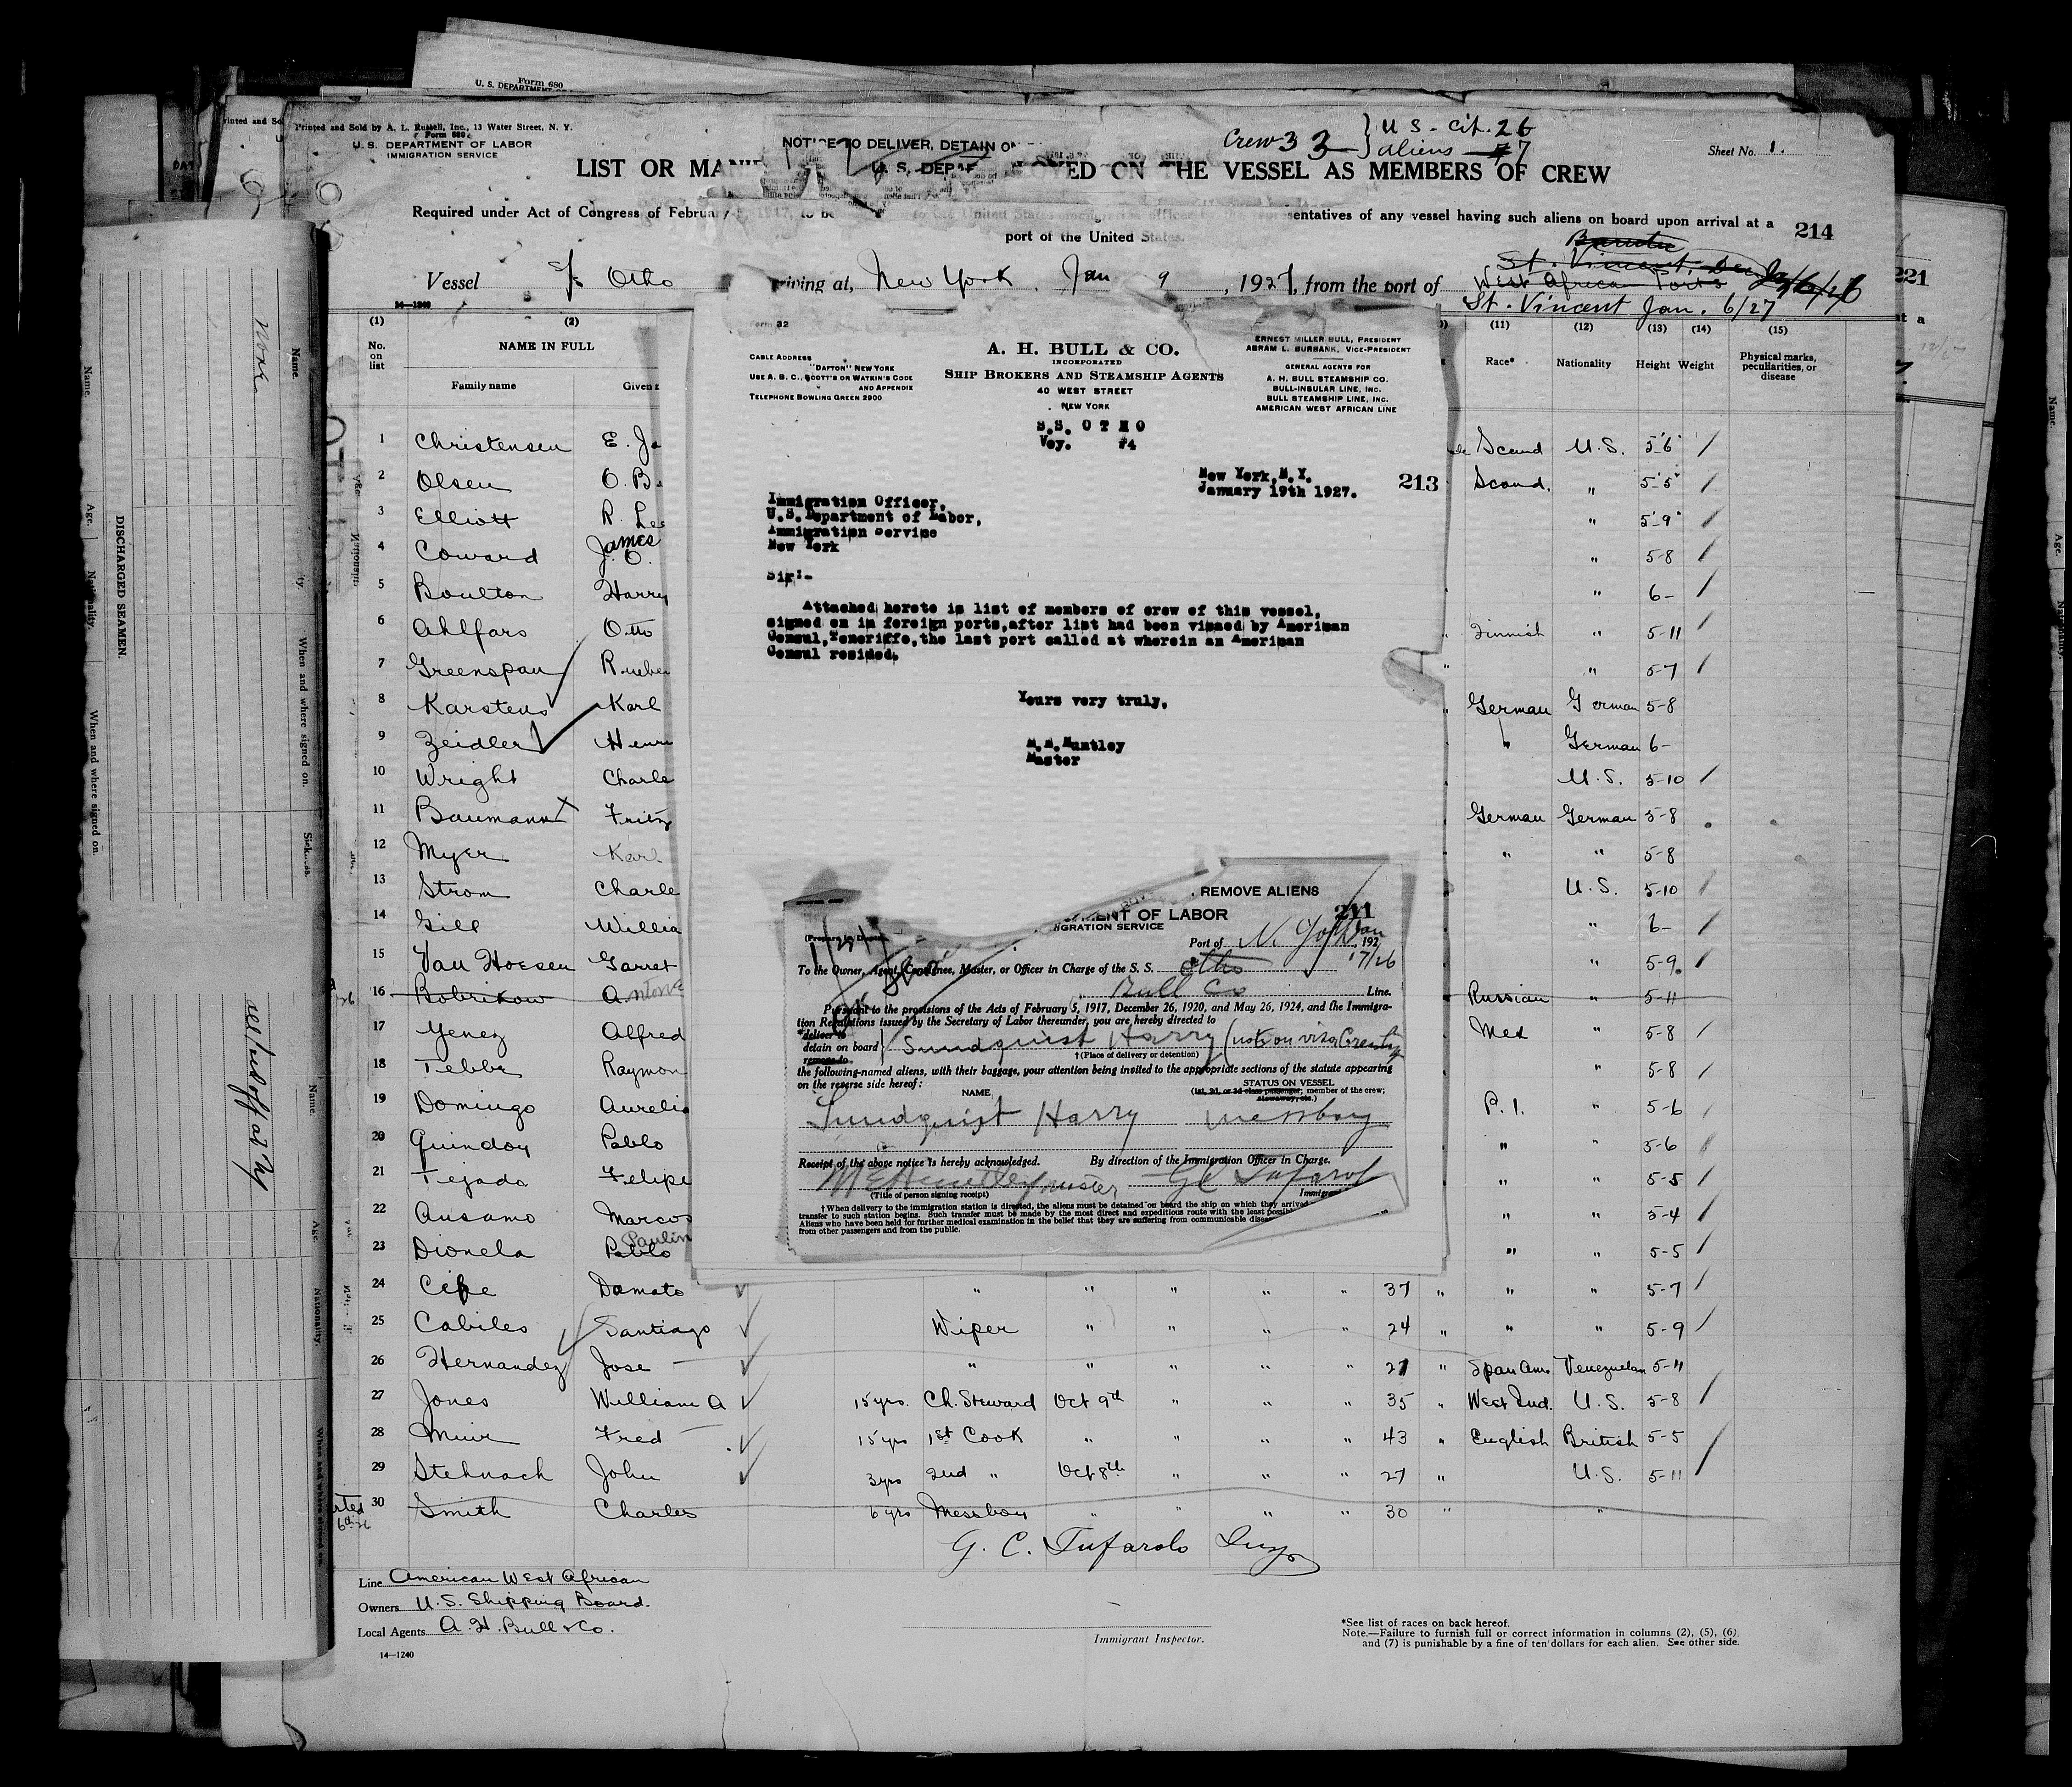 Form 680
U. S. DEPARTMENT OF
Printed and Sold by A. L. Russell, Inc., 13 Water Street, N. Y.
Form 680
U. S. DEPARTMENT OF LABOR
IMMIGRATION SERVICE
NOTICE TO DELIVER, DETAIN O
U. S. DEPAR
Crew 33 } U S - cit. 26
aliens 7
Sheet No. 1.
LIST OR MANI OYED ON THE VESSEL AS MEMBERS OF CREW
Required under Act of Congress of February 5, 1917, to be sentatives of any vessel having such aliens on board upon arrival at a
port of the United States.
214
221
Vessel Otho iving at, New York, Jan 9, 1927, from the port of
St. Vincent
West African Ports
St. Vincent Jan. 6/27
14—1240
(1) (2) (11) (12) (13) (14) (15)
No. on list NAME IN FULL Race* Nationality Height Weight Physical marks, peculiarities, or disease
Family name Given
1 Christensen E. Scand U.S. 5'6"
2 Olsen O. B. Scand. " 5'5"
3 Elliott R. Lee " 5'9"
4 Coward James " 5-8
5 Boulton Harry " 6-
6 Ahlfars Otto Finnish " 5-11
7 Greenspan Rueben " 5-7
8 Karstens Karl German German 5-8
9 Zeidler Henri " German 6-
10 Wright Charle U.S. 5-10
11 Baumann Fritz German German 5-8
12 Myer Karl " " 5-8
13 Strom Charle U.S. 5-10
14 Gill Willia " 6-
15 Van Hoesen Garret " 5-9
16 Bobrikow Antone Russian " 5-11
17 Yenez Alfred Mex " 5-8
18 Tebbe Raymon 5-8
19 Domingo Aurelio P. I. " 5-6
20 Quindoy Pablo " " 5-6
21 Tejada Felipe " " 5-5
22 Ausamo Marcos " " 5-4
23 Dionela Pablo Paulin " " 5-5
24 Cipe Damato " " " " " 37 " " " 5-7
25 Cabiles Santiago Wiper " " " " 24 " " " 5-9
26 Hernandez Jose " " " " " 27 " Span Am. Venezuelan 5-11
27 Jones William A 15 yrs. Ch. Steward Oct 9th " " " 35 " West Ind. U.S. 5-8
28 Muir Fred 15 yrs 1st Cook " " " " 43 " English British 5-5
29 Stehnach John 3 yrs 2nd " Oct 8th " " " 27 " U.S. 5-11
30 Smith Charles 6 yrs Messboy " " " " 30 " "
G. C. Tufarolo Insp
Line American West African
Owners U.S. Shipping Board.
Local Agents A. H. Bull & Co.
14—1240
Immigrant Inspector.
*See list of races on back hereof.
Note.—Failure to furnish full or correct information in columns (2), (5), (6)
and (7) is punishable by a fine of ten dollars for each alien. See other side.
Form 32
CABLE ADDRESS
"DAFTON" NEW YORK
USE A. B. C., SCOTT'S OR WATKIN'S CODE
AND APPENDIX
TELEPHONE BOWLING GREEN 2900
A. H. BULL & CO.
INCORPORATED
SHIP BROKERS AND STEAMSHIP AGENTS
40 WEST STREET
NEW YORK
ERNEST MILLER BULL, PRESIDENT
ABRAM L. BURBANK, VICE-PRESIDENT
GENERAL AGENTS FOR
A. H. BULL STEAMSHIP CO.
BULL-INSULAR LINE, INC.
BULL STEAMSHIP LINE, INC.
AMERICAN WEST AFRICAN LINE
S.S. O T H O
Voy. #4
New York, N.Y.
January 19th 1927.
213
Immigration Officer,
U.S. Department of Labor,
Immigration Service
New York
Sir:-
Attached hereto is list of members of crew of this vessel,
signed on in foreign ports, after list had been visaed by American
Consul, Teneriffe, the last port called at wherein an American
Consul resided.
Yours very truly,
M.E.Huntley
Master
REMOVE ALIENS
MENT OF LABOR
MIGRATION SERVICE
211
Port of N. York Jan 17/26 192
To the Owner, Agent, Consignee, Master, or Officer in Charge of the S. S. Otho
Bull Co Line.
Pursuant to the provisions of the Acts of February 5, 1917, December 26, 1920, and May 26, 1924, and the Immigra-
tion Regulations issued by the Secretary of Labor thereunder, you are hereby directed to
*deliver to
detain on board } Sundquist Harry (not on visa Crewlist
remove to
†(Place of delivery or detention)
the following-named aliens, with their baggage, your attention being invited to the appropriate sections of the statute appearing
on the reverse side hereof:
NAME STATUS ON VESSEL
(1st, 2d, or 3d class passenger; member of the crew; stowaway, etc.)
Sundquist Harry messboy
Receipt of the above notice is hereby acknowledged. By direction of the Immigration Officer in Charge.
M E Huntley master G C Tufarolo
(Title of person signing receipt) Immigr
†When delivery to the immigration station is directed, the aliens must be detained on board the ship on which they arrived
transfer to such station begins. Such transfer must be made by the most direct and expeditious route with the least possib
Aliens who have been held for further medical examination in the belief that they are suffering from communicable disea
from other passengers and from the public.
DISCHARGED SEAMEN.
Name.
Age.
Nationality.
When and where signed on.
None
Name.
When and where signed on.
Name.
Age.
Nationality.
When and where signed on
all paid off at NY